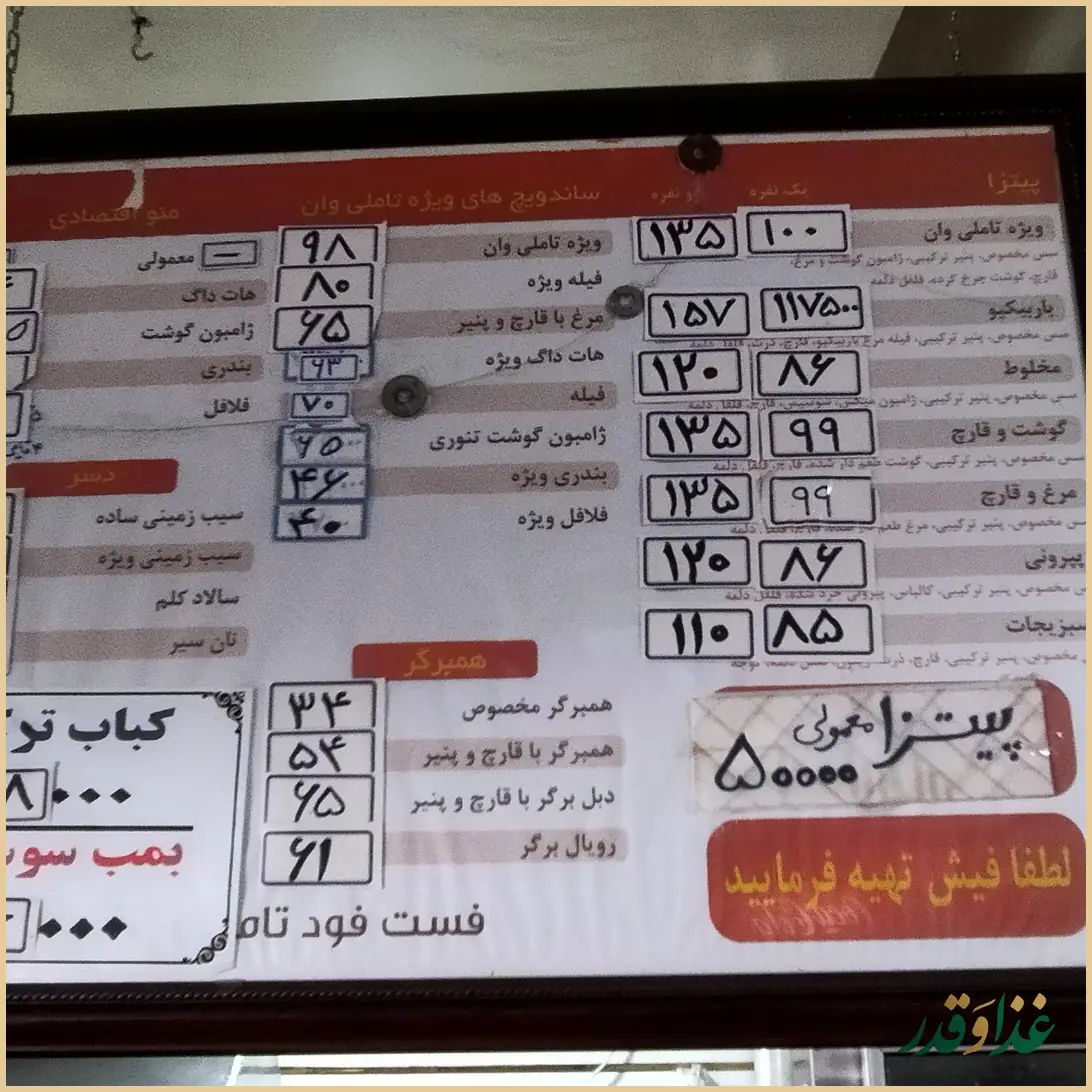 پیتزا
یک نفره
دو نفره
ویژه تاملی وان ۱۰۰ ۱۳۵
سس مخصوص، پنیر ترکیبی، ژامبون گوشت و مرغ،
قارچ، گوشت چرخ کرده، فلفل دلمه
باربیکیو ۱۱۷۵۰۰ ۱۵۷
سس مخصوص، پنیر ترکیبی، فیله مرغ باربیکیو، قارچ، ذرت، فلفل دلمه
مخلوط ۸۶ ۱۲۰
سس مخصوص، پنیر ترکیبی، ژامبون سوسیس، قارچ، فلفل دلمه
گوشت و قارچ ۹۹ ۱۳۵
سس مخصوص، پنیر ترکیبی، گوشت طعم دار شده، قارچ، فلفل دلمه
مرغ و قارچ ۹۹ ۱۳۵
س مخصوص، پنیر ترکیبی، مرغ طعم دلمه
پپرونی ۸۶ ۱۲۰
س مخصوص، پنیر ترکیبی، کالباس، پپرونی خرد شده، فلفل دلمه
سبزیجات ۸۵ ۱۱۰
مخصوص، پنیر ترکیبی، قارچ، دلمه، گوجه
پیتزا معمولی
۵۰۰۰۰
لطفا فیش تهیه فرمایید
ساندویچ های ویژه تاملی وان
ویژه تاملی وان ۹۸
فیله ویژه ۸۰
مرغ با قارچ و پنیر ۶۵
هات داگ ویژه ۶۳
فیله ۷۰
ژامبون گوشت تنوری ۶۵
بندری ویژه ۴۶
فلافل ویژه ۴۰
همبرگر
همبرگر مخصوص ۳۴
همبرگر با قارچ و پنیر ۵۴
دبل برگر با قارچ و پنیر ۶۵
رویال برگر ۶۱
فست فود تام
منو اقتصادی
معمولی
هات داگ
ژامبون گوشت
بندری
فلافل
دسر
سیب زمینی ساده
سیب زمینی ویژه
سالاد کلم
نان سیر
کباب تر
۸۰۰۰
بمب سو
۰۰۰
غذا و قدر